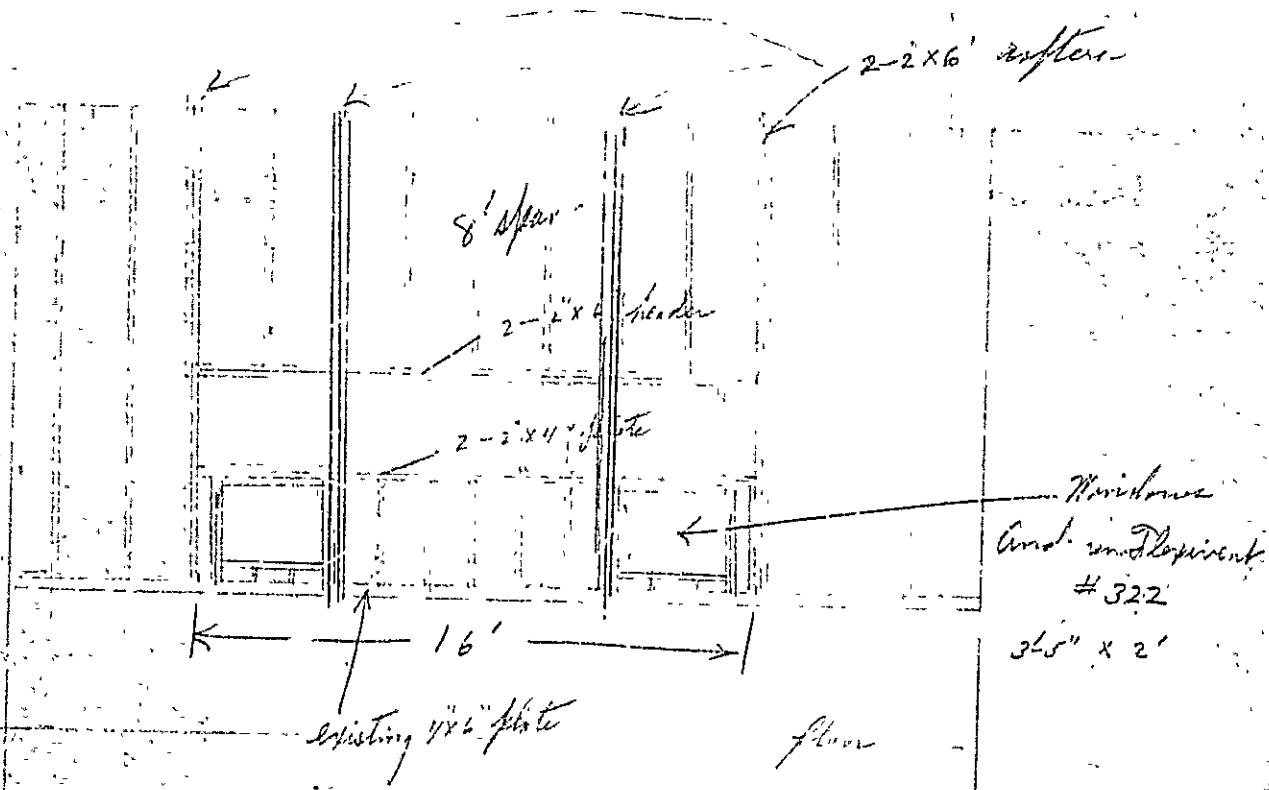 2-2x6' rafters
8' span
2-2"x6" header
2-2"x4" plate
Windows
And
#322
3'-5" x 2'
16'
existing 4"x6" plate
floor